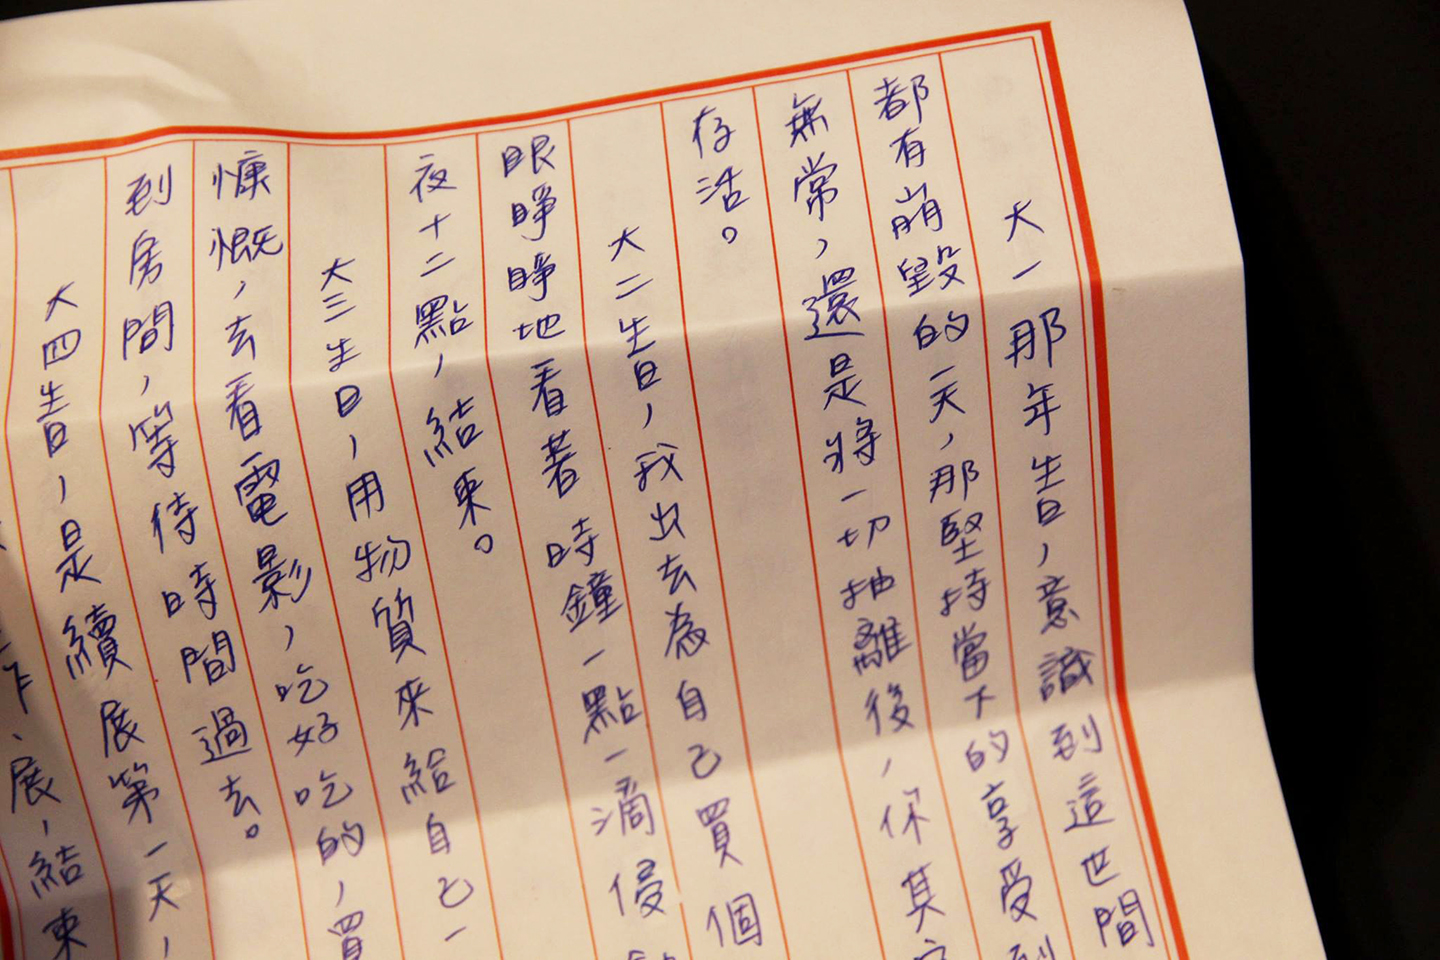 大一那年生日，意識到這世間
都有崩毀的一天，那堅持當下的享受到
無常，還是將一切抽離後，你其
存活。
大二生日，我出去為自己買個
眼睜睜地看著時鐘一點一滴侵
夜十二點，結束。
大三生日，用物質來給自己一
慷慨，去看電影，吃好吃的，買
到房間，等待時間過去。
大四生日，是續展第一天，
展，結束